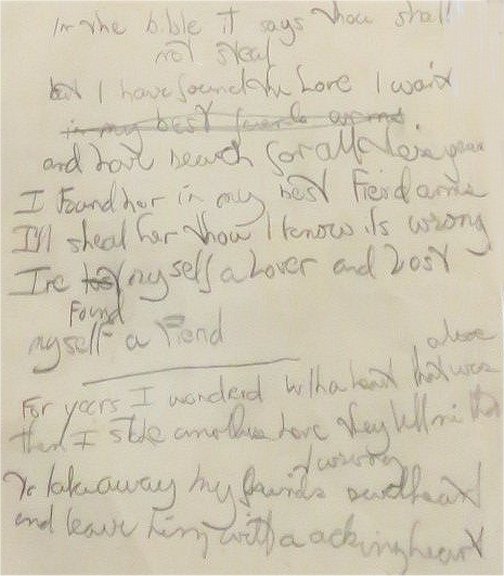 In the bible it says thou shall
not steal
but I have found the Love I want
in my best friends arms
and have search for all these years
I found her in my best Freind arms
I'll steal her thow I know its wrong
Ive lost my self a Lover and Lost
Found
my self a Fiend
alone
For years I wonderd with a heart that was
then I stole another Love they tell me
wrong
To take away my freinds sweetheart
and leave him with a acking heart